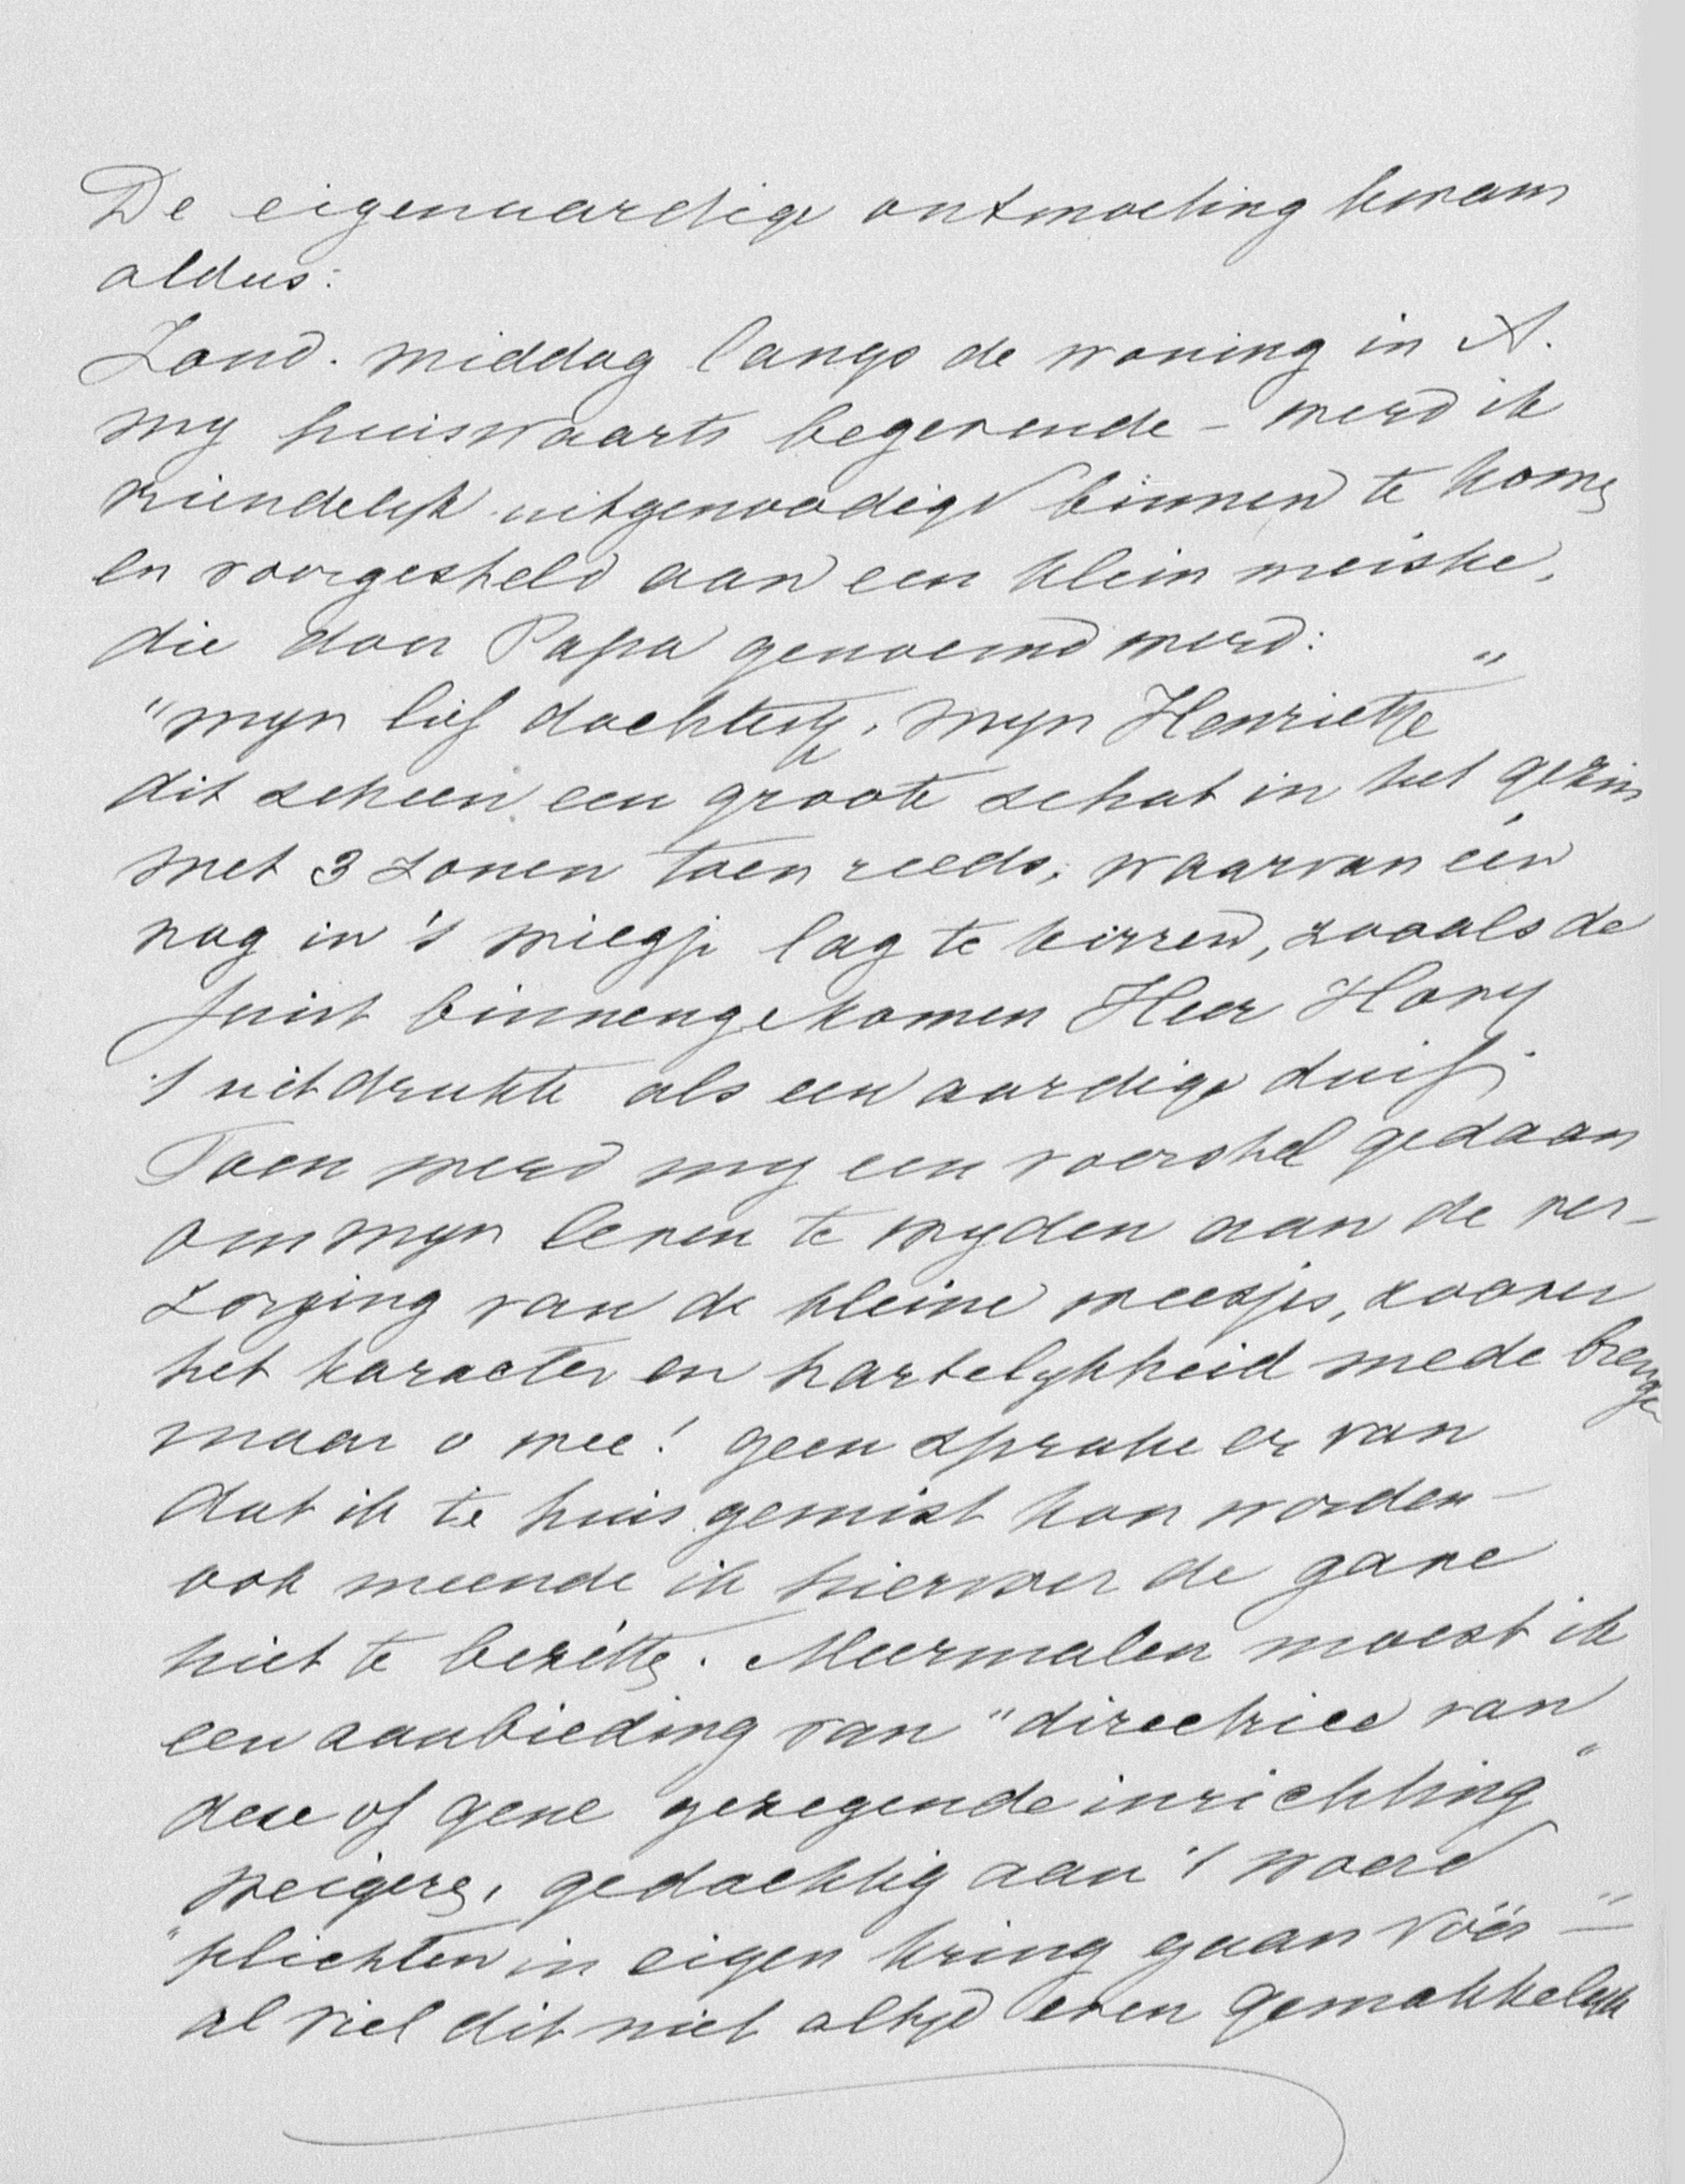 De eigenaardige ontmoeting kwam
aldus:
Zond. middag langs de woning in A.
my huiswaarts begevende – werd ik
vriendelyk uitgenoodigd binnen te komen
en voorgesteld aan een klein meiske,
die door Papa genoemd werd:
"myn lief dochtertje, myn Henriette"
dit scheen een groote schat in het gezin
met 3 zonen toen reeds, waarvan één
nog in 't wiegje lag te kirren, zooals de
juist binnengekomen Heer Hony
't uitdrukte als een aardige duif.
Toen werd my een voorstel gedaan
om myn leven te wyden aan de ver-
zorging van de kleine meesjes, zoover
het karacter en hartelykheid mede brengen
maar o wee! geen sprake er van
dat ik te huis gemist kon worden –
ook meende ik hiervoor de gave
niet te bezitten. Meermalen moest ik
een aanbieding van "directrice van
deze of gene gezegende inrichting"
weigeren, gedachtig aan 't woord
"plichten in eigen kring gaan vóór" –
al viel dit niet altyd even gemakkelyk